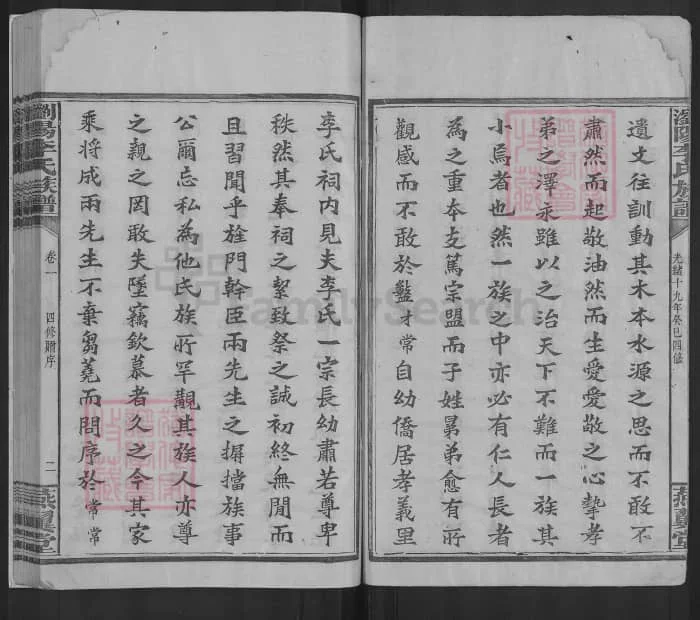 遺文往訓動其木本水源之思而不敢不
肅然而起敬油然而生愛愛敬之心摯孝
弟之澤永雖以之治天下不難而一族其
小焉者也然一族之中亦必有仁人長者
為之重本支篤宗盟而子姓羣弟愈有所
觀感而不敢於齷才常自幼僑居孝義里
瀏陽李氏族譜
光緒十九年癸巳四修
燕翼堂
李氏祠內見夫李氏一宗長幼肅若尊卑
秩然其奉祠之絜致祭之誠初終無間而
且習聞乎旌門幹臣兩先生之摒擋族事
公爾忘私為他氏族所罕覯其族人亦尊
之親之罔敢失墜竊欽慕者久之今其家
乘將成兩先生不棄芻蕘而問序於常常
瀏陽李氏族譜
卷一
四修贈序
二
燕翼堂
FamilySearch